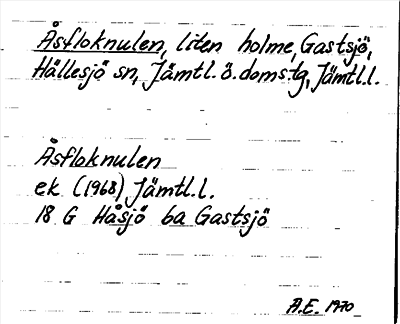 Åsfloknulen, liten holme, Gastsjö,
Hällesjö sn, Jämtl. ö. doms:tg, Jämtl.l.
Åsfloknulen
ek (1968) Jämtl.l.
18 G Håsjö 6a Gastsjö
A.E. 1970